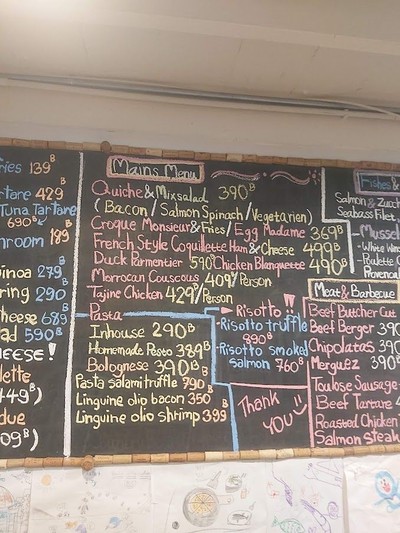 ries 139฿
rtare 429
Tuna Tartare
690฿
hroom 189
inoa 279
ring 290
cheese 689
ad 590฿
HEESE!
lette
449฿)
due
09฿)
Mains Menu
Quiche & Mixsalad 390฿
(Bacon / Salmon Spinash / Vegetarien)
Croque Monsieur & Fries / Egg Madame 369฿
French Style Coquillette Ham & Cheese 499฿
Duck Parmentier 590฿ Chicken Blanquette 490฿
Morrocan Couscous 409฿/Person
Tajine Chicken 429฿/Person
Pasta
Inhouse 290฿
Homemade Pesto 389฿
Bolognese 390฿
Pasta salami truffle 790฿
Linguine olio bacon 350฿
Linguine olio shrimp 399฿
Risotto!!
-Risotto truffle
890฿
-Risotto smoked
salmon 760฿
Thank
YOU
Fishes &
Salmon & Zucch
Seabass Filet,
Mussel
-White Wine
-Poulette C
-Provencal
Meat & Barbecue
Beef Butcher Cut
Beef Berger 390
Chipolatas 390
Merguez 390
Toulose Sausage
Beef Tartare 4
Roasted Chicken
Salmon steak